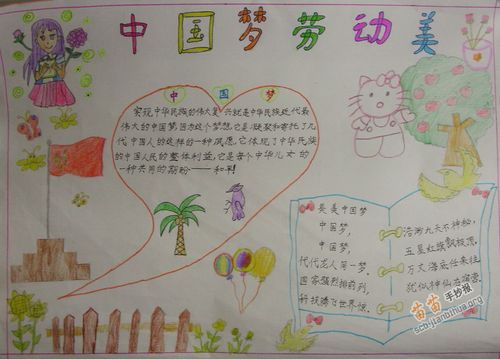 中国梦劳动美
中国梦
实现中华民族的伟大复兴就是中华民族近代最
伟大的中国梦因为这个梦想它是凝聚和寄托了几
代中国人的这样的一种夙愿它体现了中华民族
的中国人民的整体利益它是每个中华儿女的
一种共同的期盼——和平!
美美中国梦
中国梦,
中国梦,
代代龙人第一梦.
国家强烈排前列,
科技腾飞世界惊.
浩渺九天不神秘,
五星红旗飘
万丈海底任来往
犹似神仙
苗苗手抄报
scb.jianbihua.org